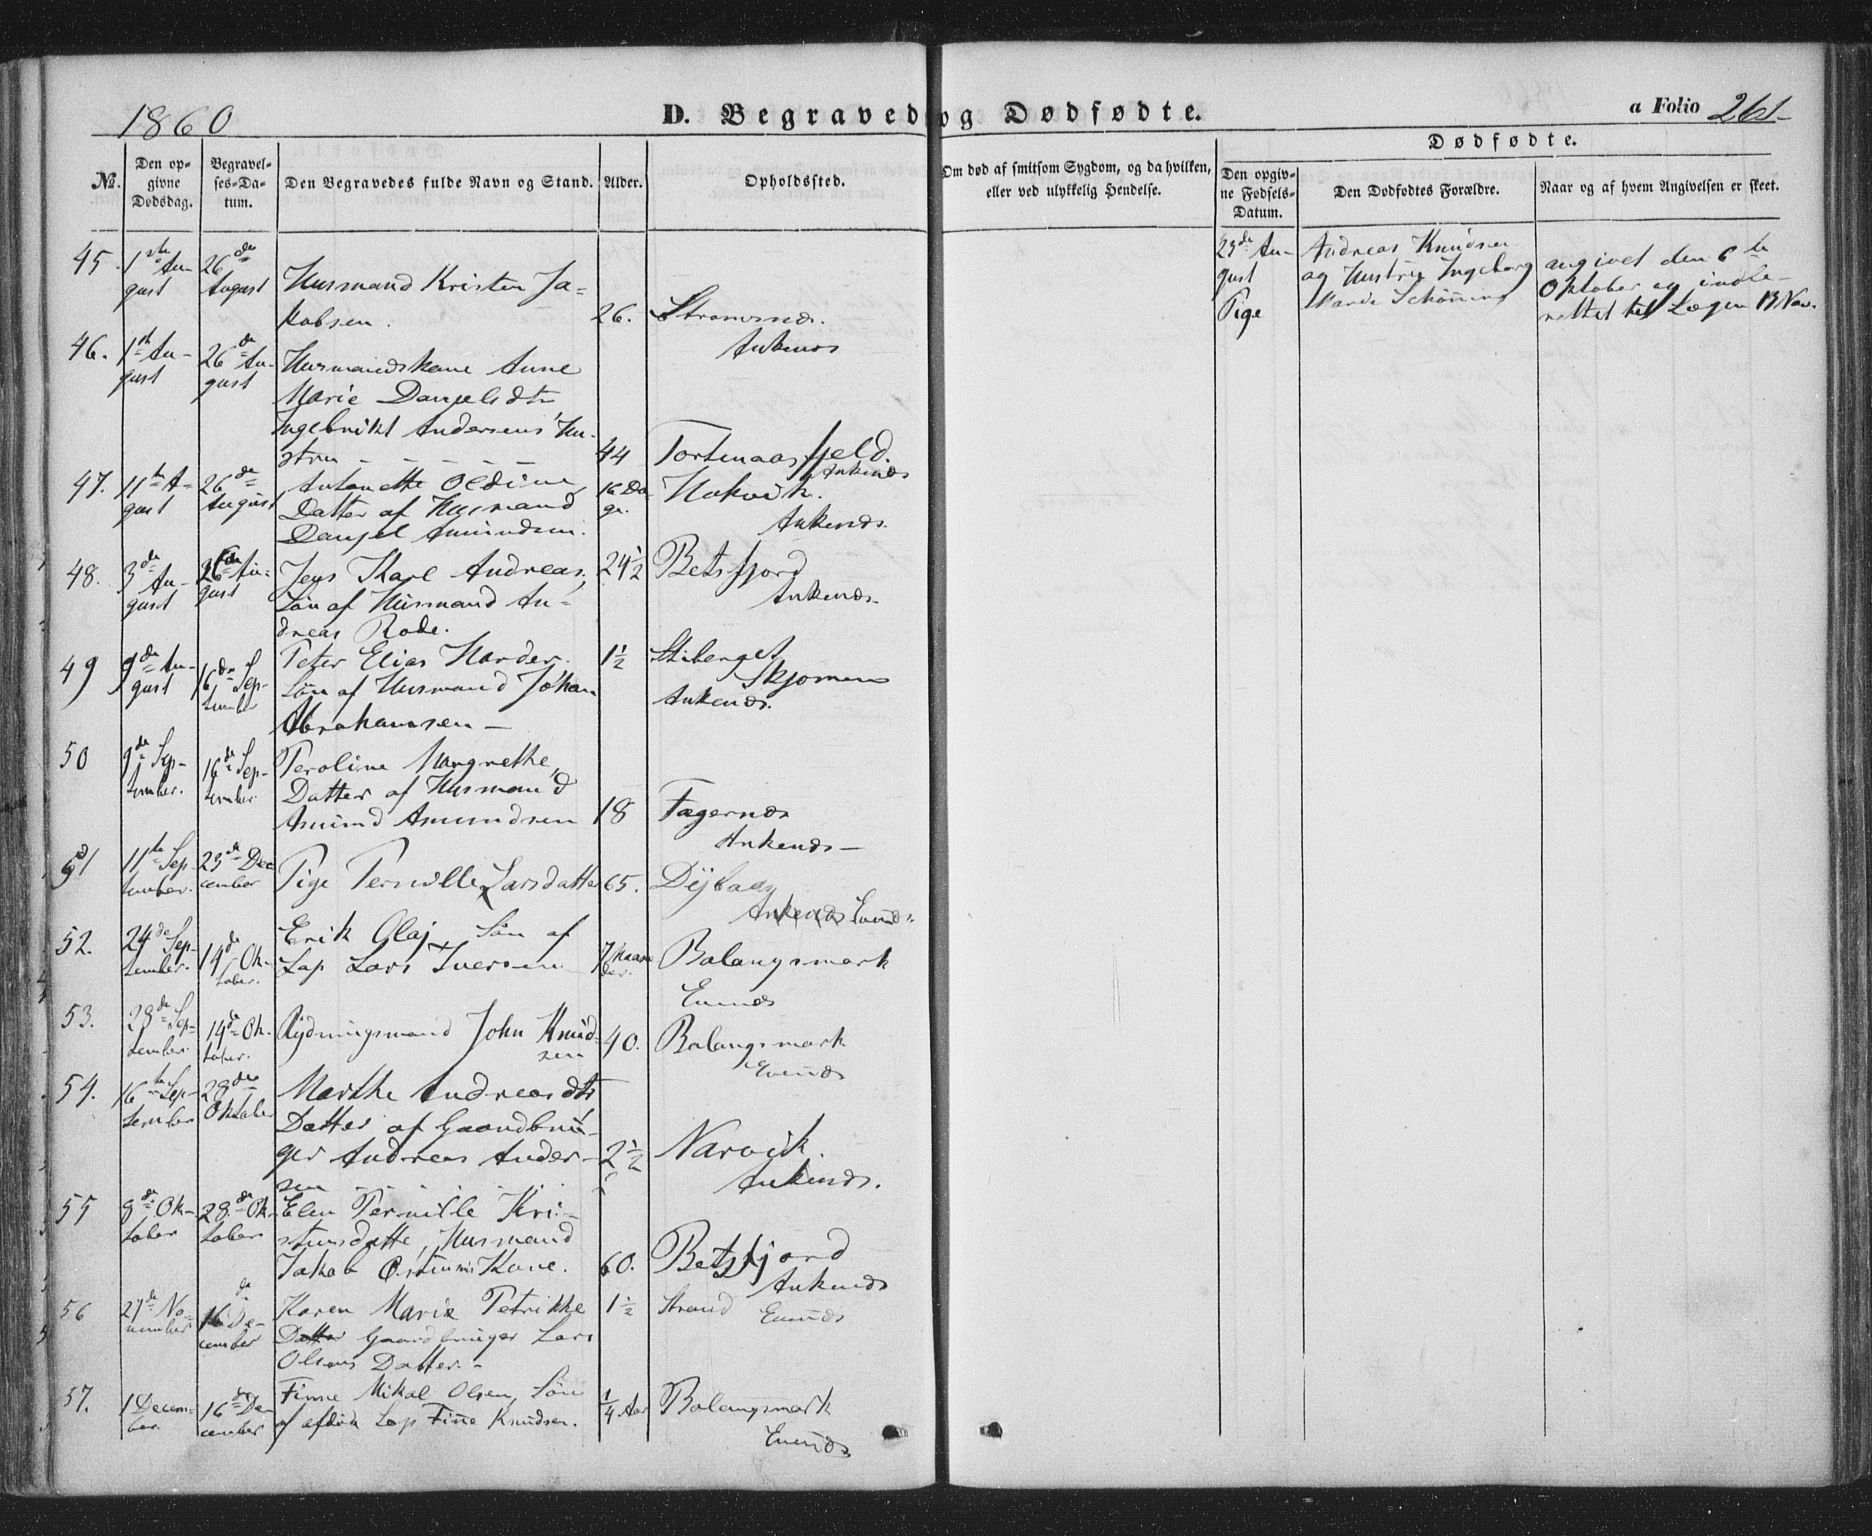 1860
D. Begravede og Dødfødte.
a Folio 261
Dødfødte.
No.
Den opgivne Dødsdag.
Begravelses-Datum.
Den Begravedes fulde Navn og Stand.
Alder.
Opholdssted.
Om død af smitsom Sygdom, og da hvilken,
eller ved ulykkelig Hendelse.
Den opgivne Fødsels-Datum.
Den Dødfødtes Forældre.
Naar og af hvem Angivelsen er skeet.
45. 1ste August 26de August Husmand Kristen Jakobsen. 26. Ankenes
23de August Pige
Andreas Knudsen
og Hustru Ingeborg
Schöning
angivet den 6te
Oktober og indberettet til Lægen 13 Nov.
46. 1ste August 26de August Husmandskone Anne
Marie Danjelsdtr
Ingebrikt Andersens Hustru - - - - 44
Ankenes
47. 11te August 26de August Antonette Oldine
Datter af Husmand
Danjel Amundsen. 16 Dage. Hakvik.
Ankenes.
48. 3de August 26de August Jens Karl Andreas,
Sön af Husmand Andreas Rode. 24½ Betsfjord
Ankenes.
49 9de August 16de September Peter Elias Harder.
Sön af Husmand Johan
Abrahamsen - 1½ Stiberget
Skjomen
Ankenes.
50 9de September. 16de September Peroline Margrethe,
Datter af Husmand
Amund Amundsen 18 Fagernes
Ankenes -
51 11te September. 23de December Pige Pernille Larsdatter 65.
Ankenes Evenes.
52. 24de September. 14de Oktober. Erik Olaj Sön af
Lap Lars Iversen 7 Maaneder. Balangsmark
Evenes
53. 28de September. 14de Oktober. Rydningsmand John Knudsen 40. Balangsmark
Evenes
54. 16te September 28de Oktober Marthe Andreasdtr
Datter af Gaardbruger Andreas Andersen - - - 2½ Narvik.
Ankenes.
55 9de Oktober 28de Oktober Elen Pernille Kristensdatte, Husmand
Jakob Kone. 60. Betsfjord
Ankenes
56 27de November 16de December Karen Marie Petrikke
Datter Gaardbruger Lars
Olsens Datter. - 1½ Strand Evenes
57. 1 December 16de December Finne Mikal Olsen, Sön
af afdöde Lap Finne Knudsen. ¼ Aar Balangsmark
Evenes